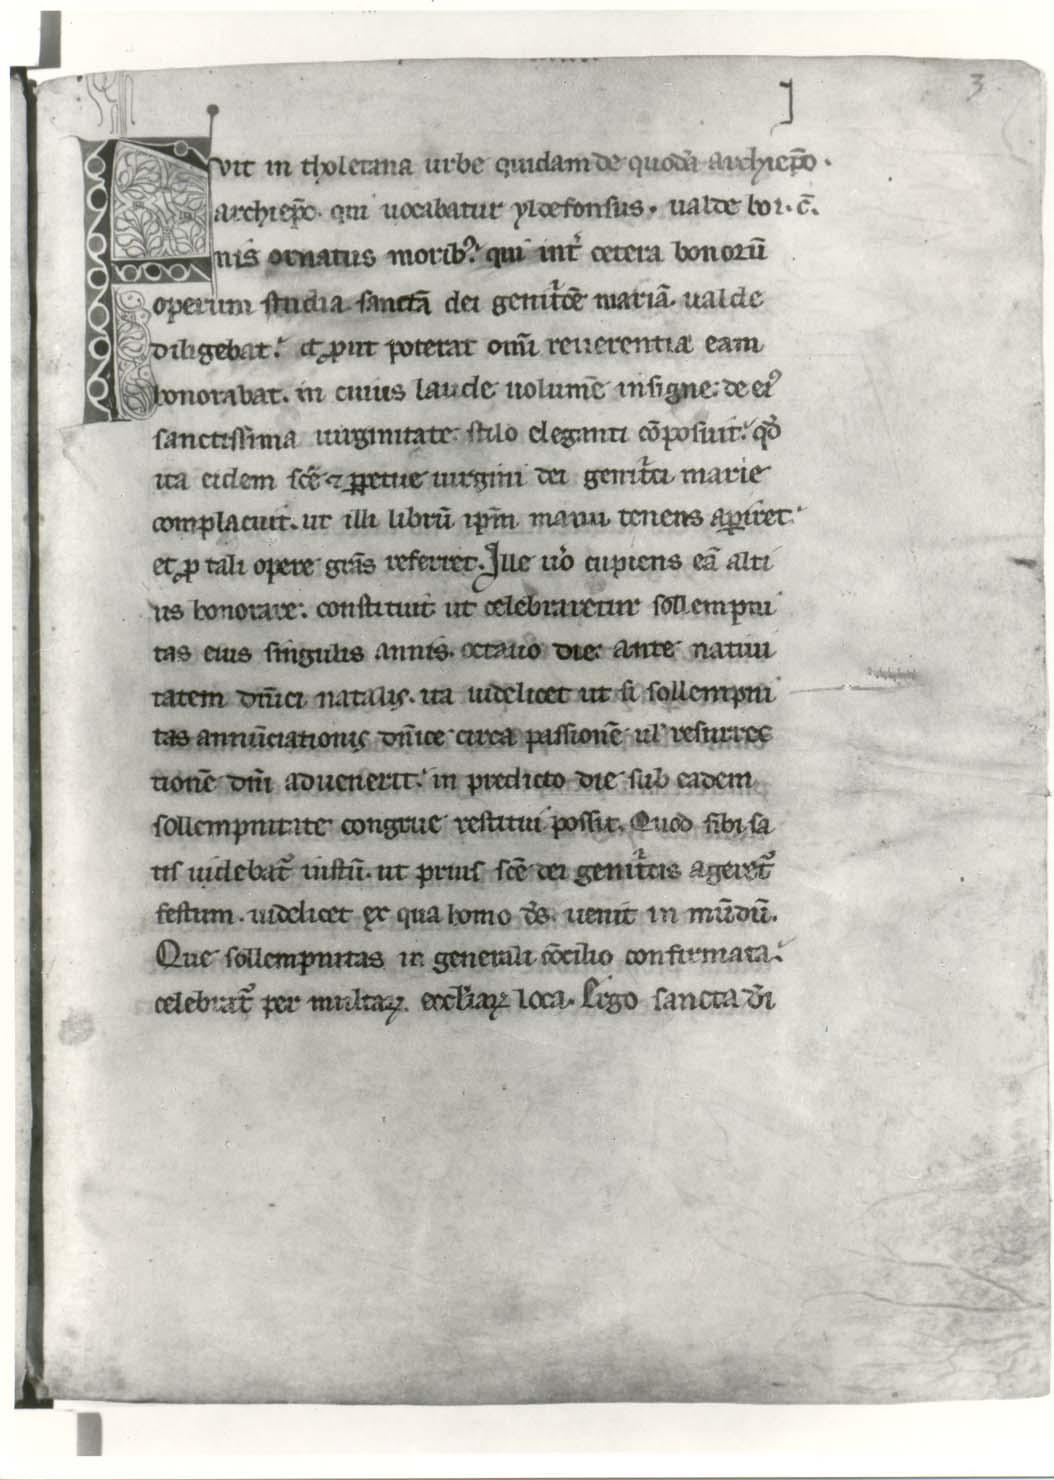 3
Fvit in tholetana urbe quidam de quodã archiep̄o .
archiep̄o . qui uocabatur yldefonsus . ualde bo
nis ornatus morib; qui int̉ cetera bonorū
operum studia sanctã dei genit̉cē mariã ualde
diligebat . et ꝓut poterat om̄i reuerentia eam
honorabat . in cuius laude uolumē insigne de eiꝰ
sanctissima uirginitate stilo eleganti cōposuit . qd̉
ita eidem scē ⁊ ꝑpetue uirgini dei genit̉ci marie
complacuit . ut illi librū ip̄m manu tenens aꝑiret
et ꝓ tali opere gr̄as referret . Ille ủo cupiens eã alti
us honorare . constituit ut celebraretur sollempni
tas eius singulis annis . octauo die ante natiui
tatem dn̄ici natalis . ita uidelicet ut si sollempni
tas annūciationis dn̄ice circa passionē ul̉ resurrec
tionē dn̄i aduenerit . in predicto die sub eadem
sollempnitate congrue restitui possit . Quod sibi sa
tis uidebat̉ iustū . ut prius scē dei genit̉cis ageret̉
festum . uidelicet ex qua homo d̄s uenit in mūdū .
Que sollempnitas in generali cōcilio confirmata .
celebrat̉ per multaꝝ eccl̉iaꝝ loca . Ergo sancta d̄i